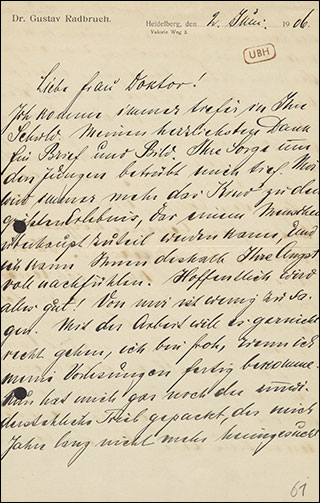 Dr. Gustav Radbruch.
Heidelberg, den 2. Juni 1906.
Valerie Weg 3.
UBH
Liebe Frau Doktor!
Ich komme immer tiefer in Ihre
Schuld. Meinen herzlichsten Dank
für Brief und Bild. Ihre Sorge um
den Jungen betrübt mich tief. Mir
wird immer mehr das Kind zu dem
größten Erlebnis, das einem Menschen
überhaupt zuteil werden kann, und
ich kann Ihnen deshalb Ihre Angst
voll nachfühlen. Hoffentlich wird
alles gut! Von mir ist wenig zu sa-
gen. Mit der Arbeit will es garnicht
recht gehen, ich bin froh, wenn ich
meine Vorlesungen fertig bekomme.
Nun hat mich gar noch der unwi-
derstehliche Trieb gepackt, der mich
Jahre lang nicht mehr heimgesucht
61